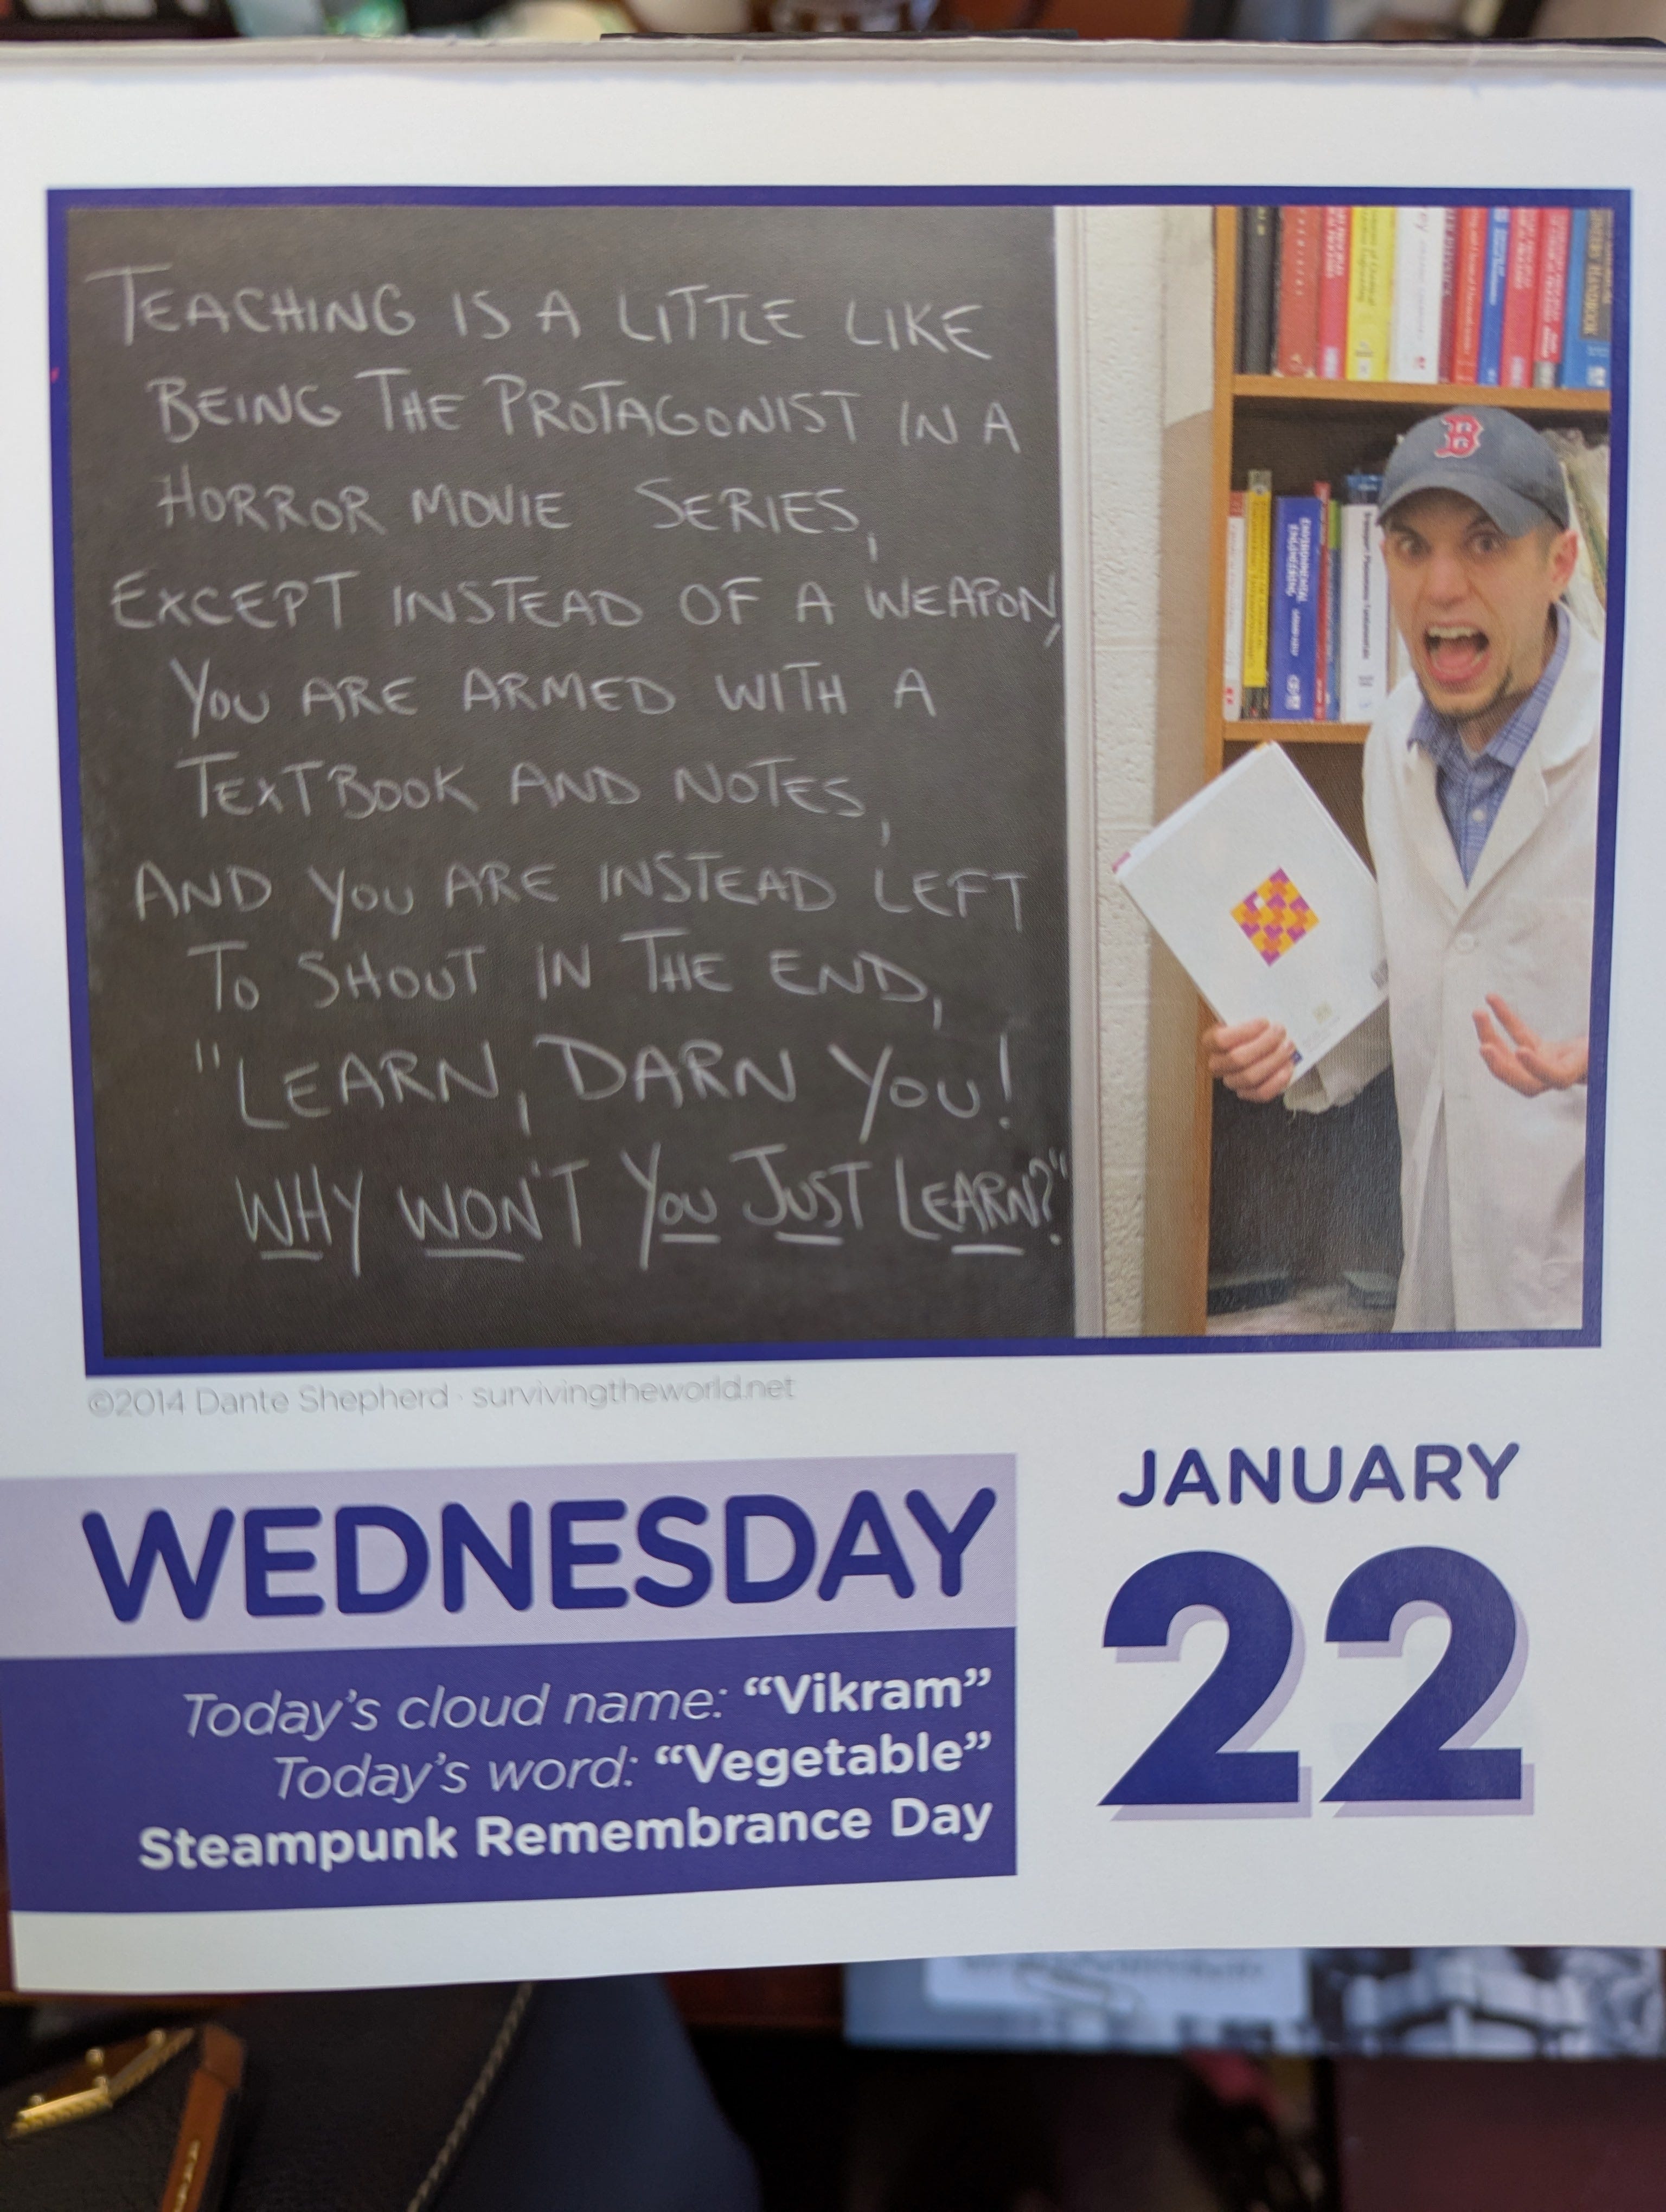 TEACHING IS A LITTLE LIKE
BEING THE PROTAGONIST IN A
HORROR MOVIE SERIES,
EXCEPT INSTEAD OF A WEAPON,
YOU ARE ARMED WITH A
TEXTBOOK AND NOTES,
AND YOU ARE INSTEAD LEFT
TO SHOUT IN THE END,
"LEARN, DARN YOU!
WHY WON'T YOU JUST LEARN?"
B
ENVIRONMENTAL
ENGINEERING
HANDBOOK
©2014 Dante Shepherd · survivingtheworld.net
WEDNESDAY
JANUARY
22
Today's cloud name: “Vikram”
Today's word: “Vegetable”
Steampunk Remembrance Day